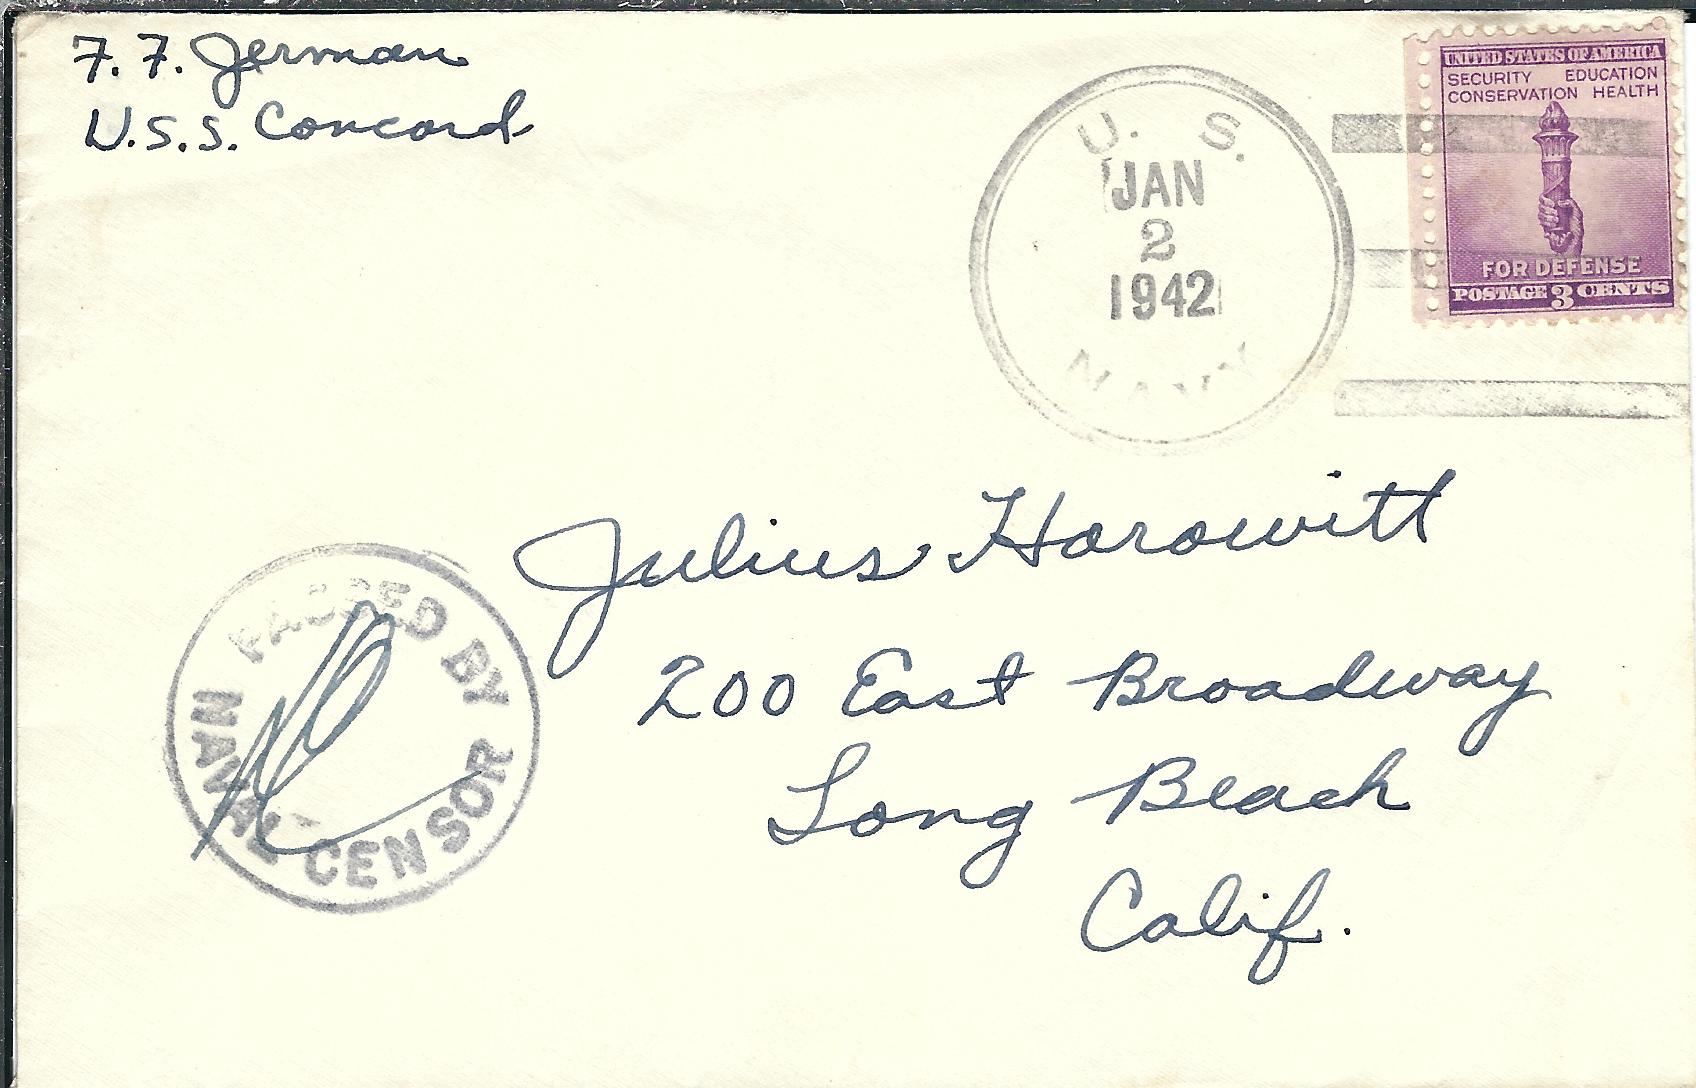 F. F. Jerman
U.S.S. Concord
U. S.
JAN
2
1942
NAVY
UNITED STATES OF AMERICA
SECURITY EDUCATION
CONSERVATION HEALTH
FOR DEFENSE
POSTAGE 3 CENTS
Julius Horowitt
200 East Broadway
Long Beach
Calif.
PASSED BY
NAVAL CENSOR